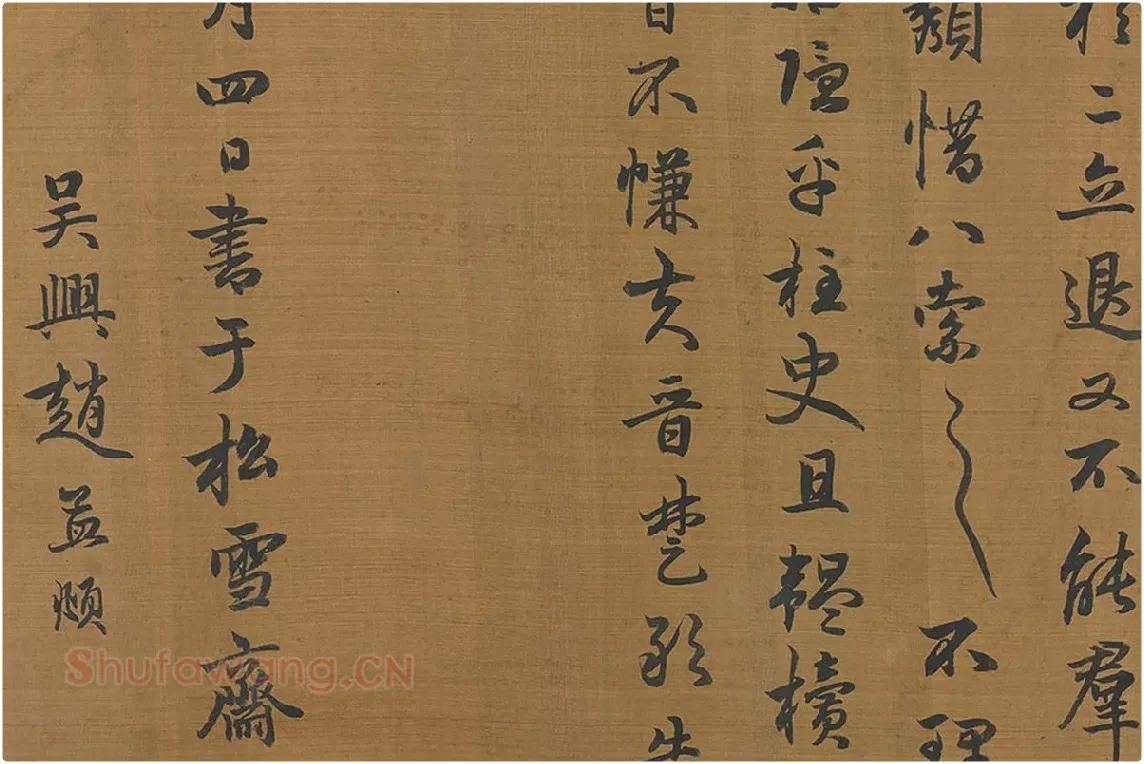 二立退又不能羣
類惜八索〻不理
隱乎柱史且韞櫝
不慊夫晉楚
月四日書于松雪齋
吴興趙孟頫
Shufawang.CN